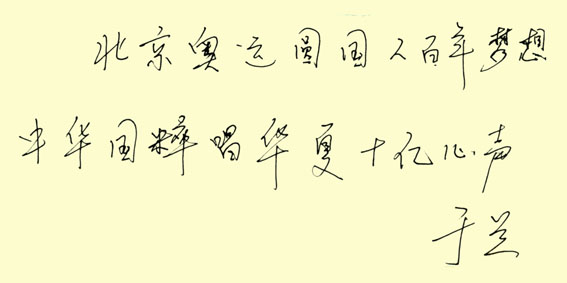 北京奥运圆国人百年梦想
中华国粹唱华夏十亿心声
于兰